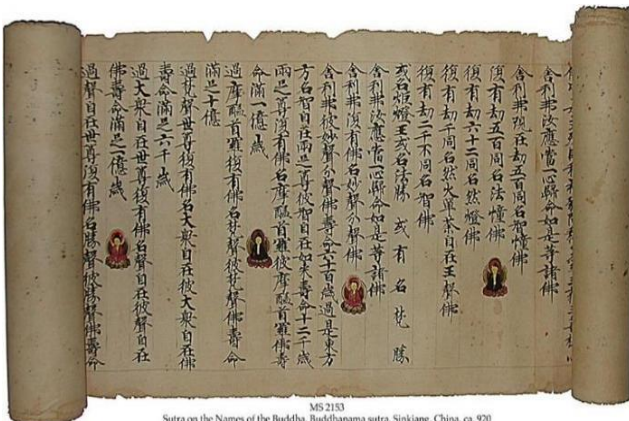 舍利弗汝應當一心歸命如是等諸佛
舍利弗現在劫五百同名智幢佛
復有劫五百同名法幢佛
復有劫六十二同名然燈佛
復有劫千同名然火單荼自在王聲佛
復有劫二千不同名智佛
或名熖燈王或名法勝 或有名梵勝
舍利弗汝應當一心歸命如是等諸佛
舍利弗復有佛名妙聲分聲佛
舍利弗彼妙聲分聲佛壽命六十百歲過是東方
方名智自在兩足尊彼智自在如來壽命十二千歲
兩足尊復有佛名摩醯首羅彼摩醯首羅佛壽
命滿一億歲
過摩醯首羅復有佛名梵聲彼梵聲佛壽命
滿足十億
過梵聲世尊復有佛名大衆自在彼大衆自在佛
壽命滿足六千歲
過大衆自在世尊復有佛名聲自在彼聲自在
佛壽命滿足一億歲
過聲自在世尊復有佛名勝聲彼勝聲佛壽命
MS 2153
Sutra on the Names of the Buddha, Buddhanama sutra, Sinkiang, China, ca. 920